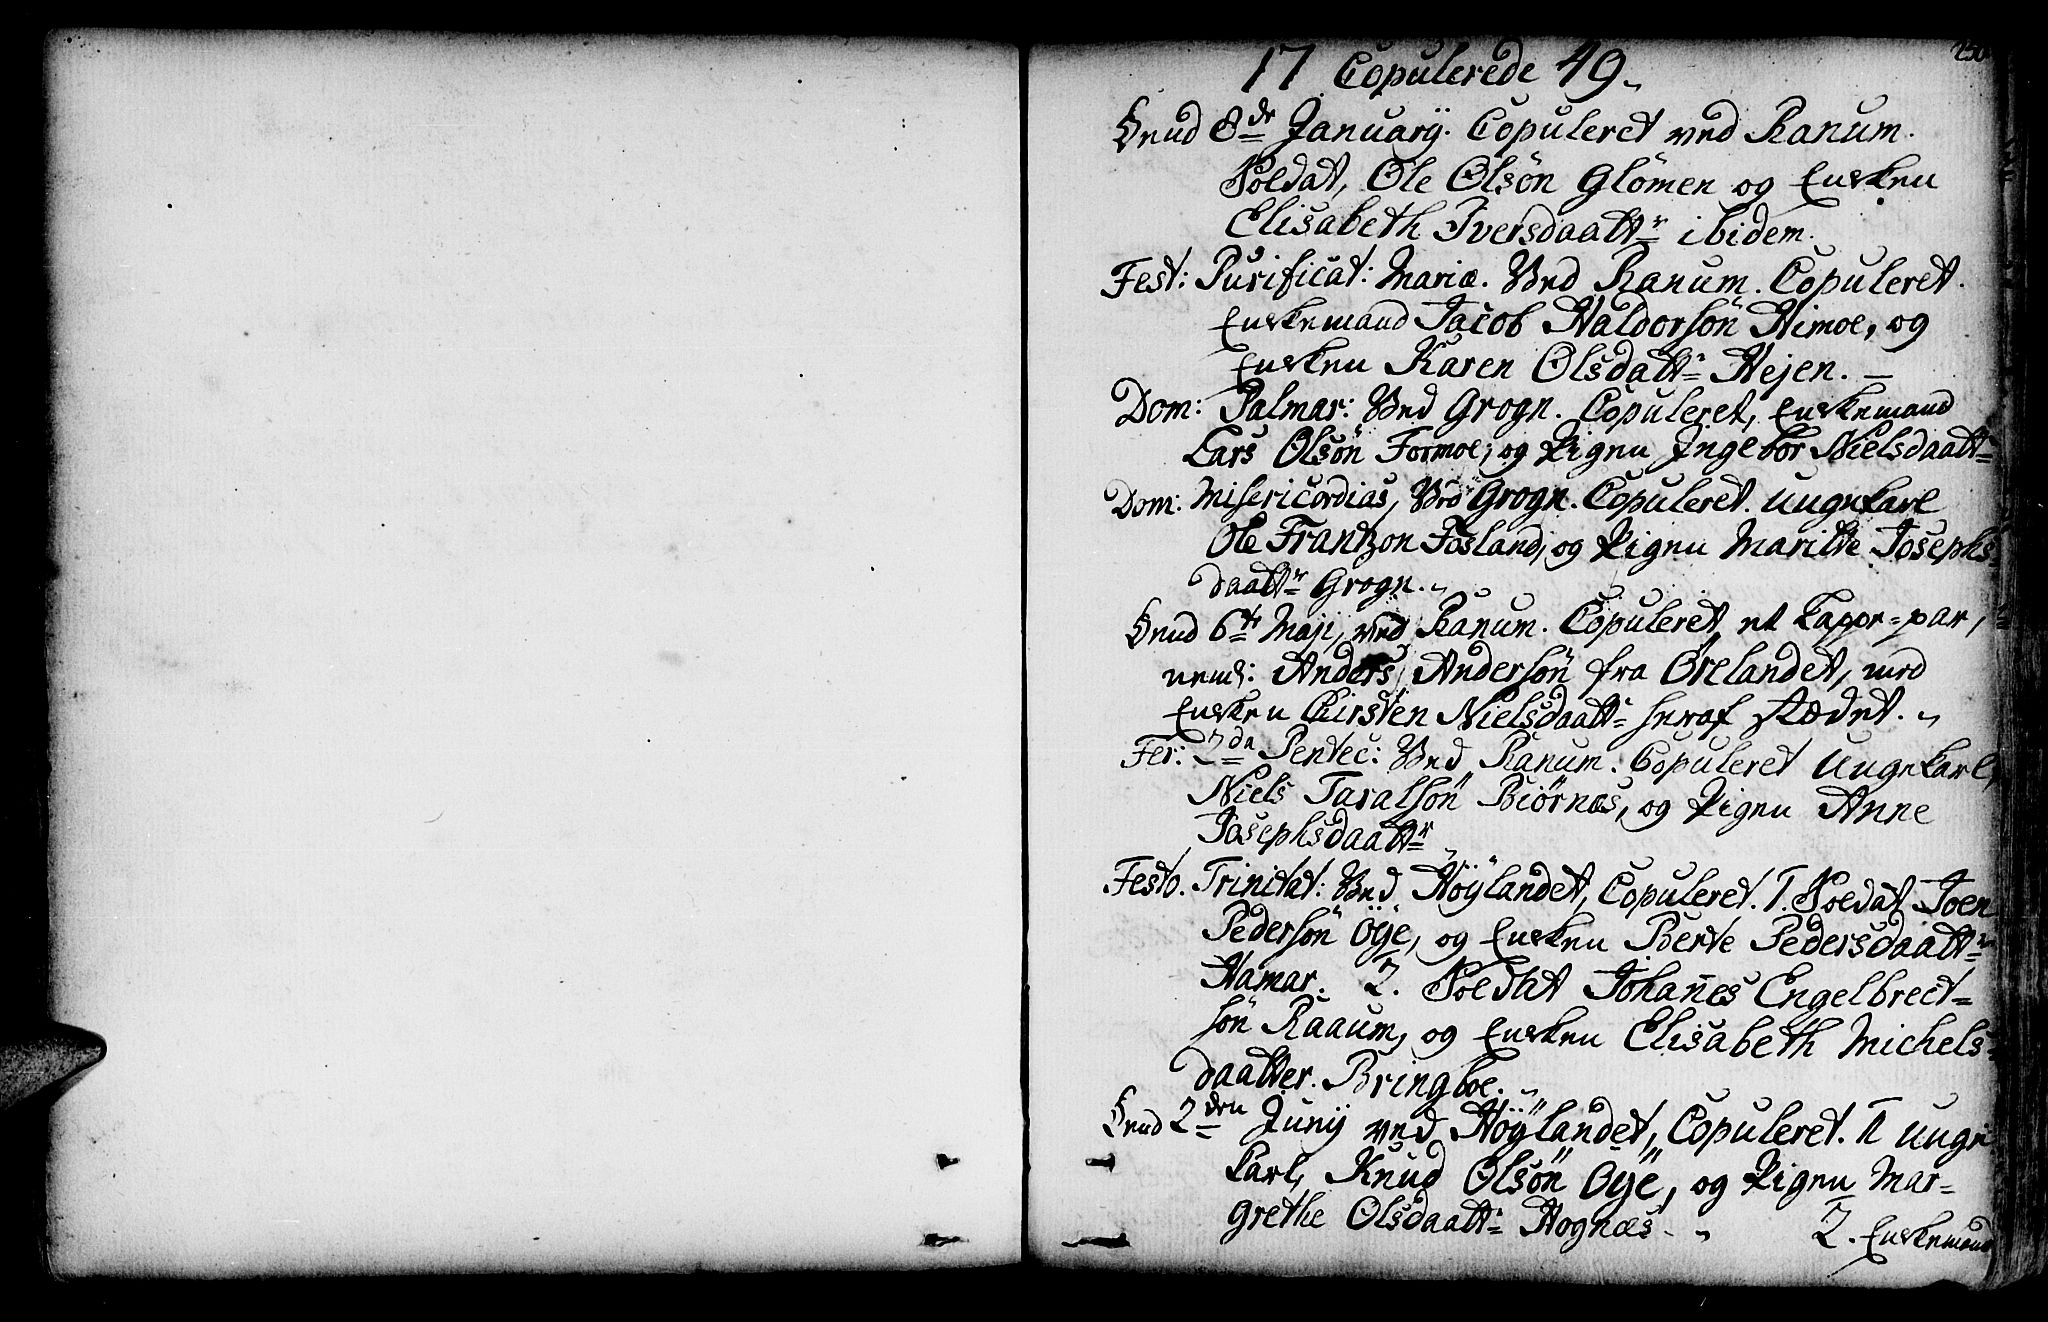 250
17 Copulerede 49.
Dend 8de Januarÿ. Copuleret ved Ranum.
Soldat, Ole Olsön Glömen og Enken
Elisabeth Iversdaattr ibidem.
Fest: Purificat: Mariæ. Ved Ranum. Copuleret.
Enkemand Jacob Haldorsön Himoe, og
Enken Karen Olsdattr Hejen. —
Dom: Palmar: Ved Grogn. Copuleret, Enkemand
Lars Olsön Formoe, og Pigen Ingebor Nielsdaattr
Dom: Misericordias, Ved Grogn. Copuleret. Ungekarl
Ole Frantzon Fosland, og Pigen Maritte Josephs-
daattr Grogn.
Dend 6te Maji, ved Ranum. Copuleret, et Lapper-par,
neml: Anders Andersön fra Örelandet, med
Enken Chirsten Nielsdaattr heraf stædet.
Fer: 2da Pentec: Ved Ranum. Copuleret Ungekarl,
Niels Taralsön Biörnæs, og Pigen Anne
Josephsdaattr
Festo. Trinitat: Ved Höÿlandet, Copuleret. 1. Soldat Joen
Pedersön Öÿe, og Enken Berte Pedersdaattr
Hamar. 2. Soldat Johanes Engelbrect-
sön Raaum, og Enken Elisabeth Michels-
daatter. Bringboe.
Dend 2den Junÿ ved Höÿlandet, Copuleret. 1 Unge
karl, Knud Olsön Öÿe, og Pigen Mar-
grethe Olsdaattr Hognæs. 2. Enkemand